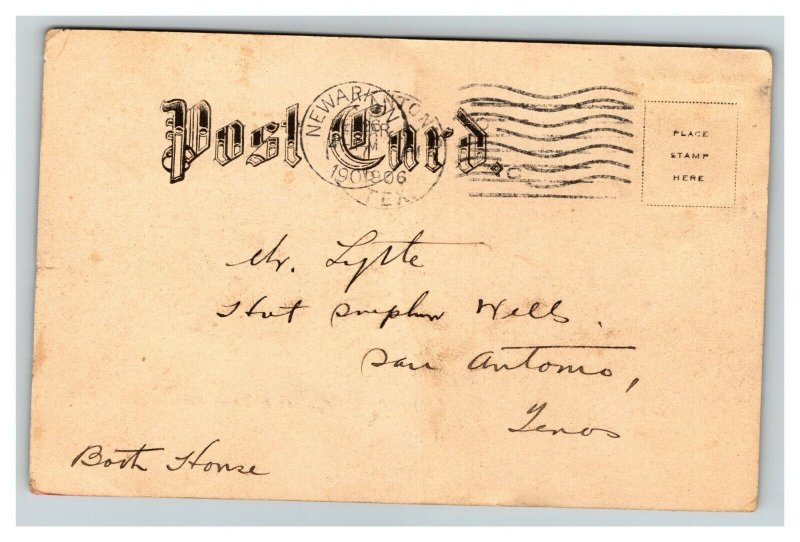 Post Card.
NEWARK, N.J.
1906
TEX.
PLACE
STAMP
HERE
Mr. Lytte
Hot Sulphur Wells.
San Antonio,
Texas
Bath House